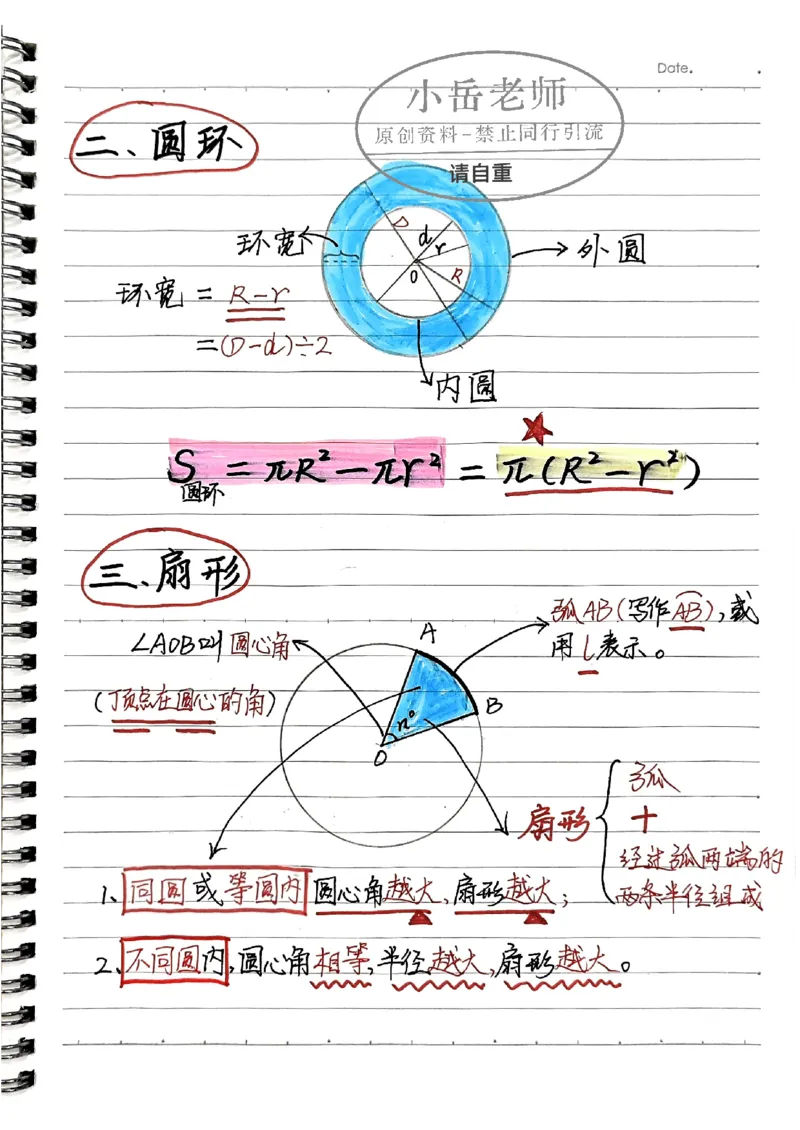 Date.
小岳老师
原创资料-禁止同行引流
请自重
二、圆环
环宽
D
d
r
O
R
外圆
环宽 = R-r
=(D-d)÷2
内圆
S圆环 = πR²-πr² = π(R²-r²)
三、扇形
弧AB(写作AB⌒),或
用l表示。
∠AOB叫圆心角
(顶点在圆心的角)
A
B
n°
O
扇形
弧
+
经过弧两端的
两条半径组成
1、同圆或等圆内圆心角越大,扇形越大;
2、不同圆内,圆心角相等,半径越大,扇形越大。